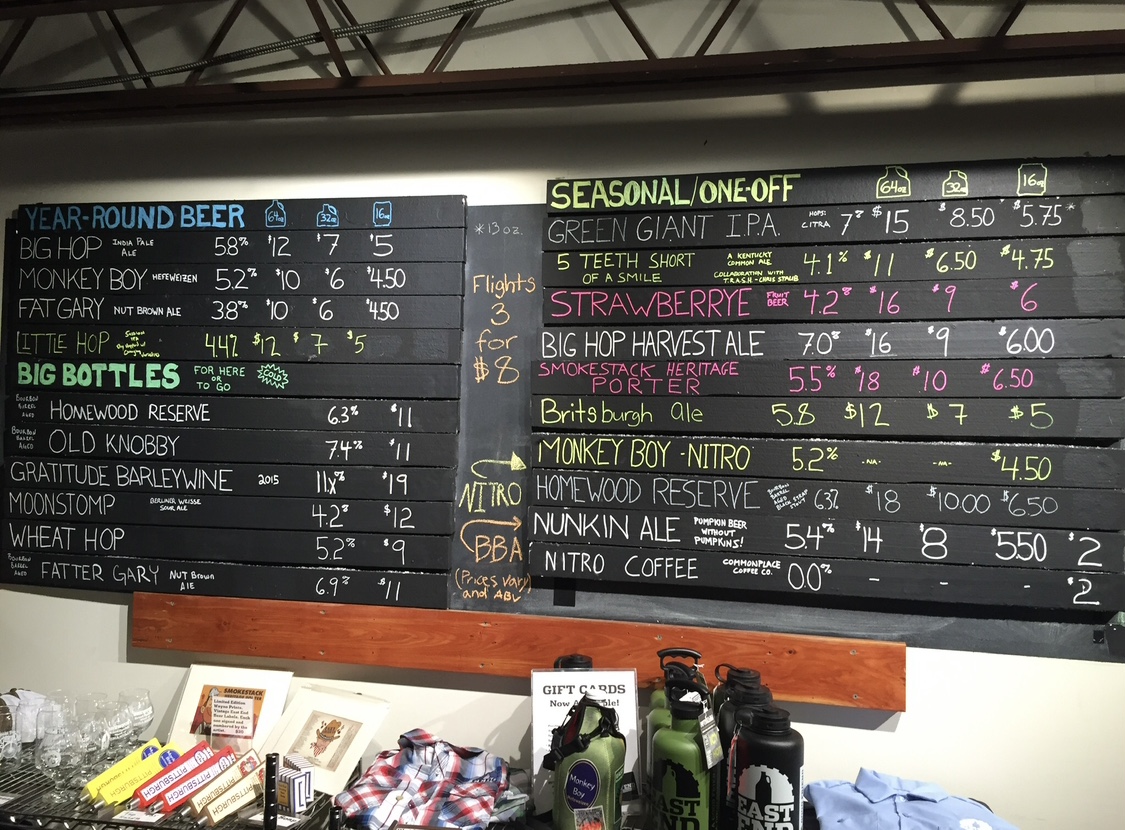 YEAR-ROUND BEER 64oz 32oz 16oz
BIG HOP INDIA PALE ALE 5.8% $12 $7 $5
MONKEY BOY HEFEWEIZEN 5.2% $10 $6 $4.50
FAT GARY NUT BROWN ALE 3.8% $10 $6 $4.50
LITTLE HOP 4.4% $12 $7 $5
BIG BOTTLES FOR HERE OR TO GO COLD!
BOURBON BARREL AGED HOMEWOOD RESERVE 6.3% $11
BOURBON BARREL AGED OLD KNOBBY 7.4% $11
GRATITUDE BARLEYWINE 2015 11.x% $19
MOONSTOMP BERLINER WEISSE SOUR ALE 4.2% $12
WHEAT HOP 5.2% $9
BOURBON BARREL AGED FATTER GARY NUT Brown AlE 6.9% $11
*13oz.
Flights
3
for
$8
NITRO
BBA
(Prices Vary
and ABV)
SEASONAL/ONE-OFF 64oz 32oz 16oz
GREEN GIANT I.P.A. HOPS: CITRA 7% $15 $8.50 $5.75*
5 TEETH SHORT OF A SMILE A KENTUCKY COMMON ALE COLLABORATION WITH T.R.A.S.H - CHRIS STAUB 4.1% $11 $6.50 $4.75
STRAWBERRYE FRUIT BEER 4.2% $16 $9 $6
BIG HOP HARVEST ALE 7.0% $16 $9 $6.00
SMOKESTACK HERITAGE PORTER 5.5% $18 $10 $6.50
Britsburgh Ale 5.8 $12 $7 $5
MONKEY BOY -NITRO 5.2% -NA- -NA- $4.50
HOMEWOOD RESERVE BOURBON BARREL AGED BLACK STRAP STOUT 6.3% $18 $10.00 $6.50
NUNKIN ALE PUMPKIN BEER WITHOUT PUMPKINS! 5.4% $14 $8 $5.50 $2
NITRO COFFEE COMMONPLACE COFFEE CO. 0.0% - - - $2
SMOKESTACK
Limited Edition
GIFT CARDS
Monkey
Boy
PITTSBURGH
PITTSBURGH
PITTSBURGH
EAST
END
EAST
END